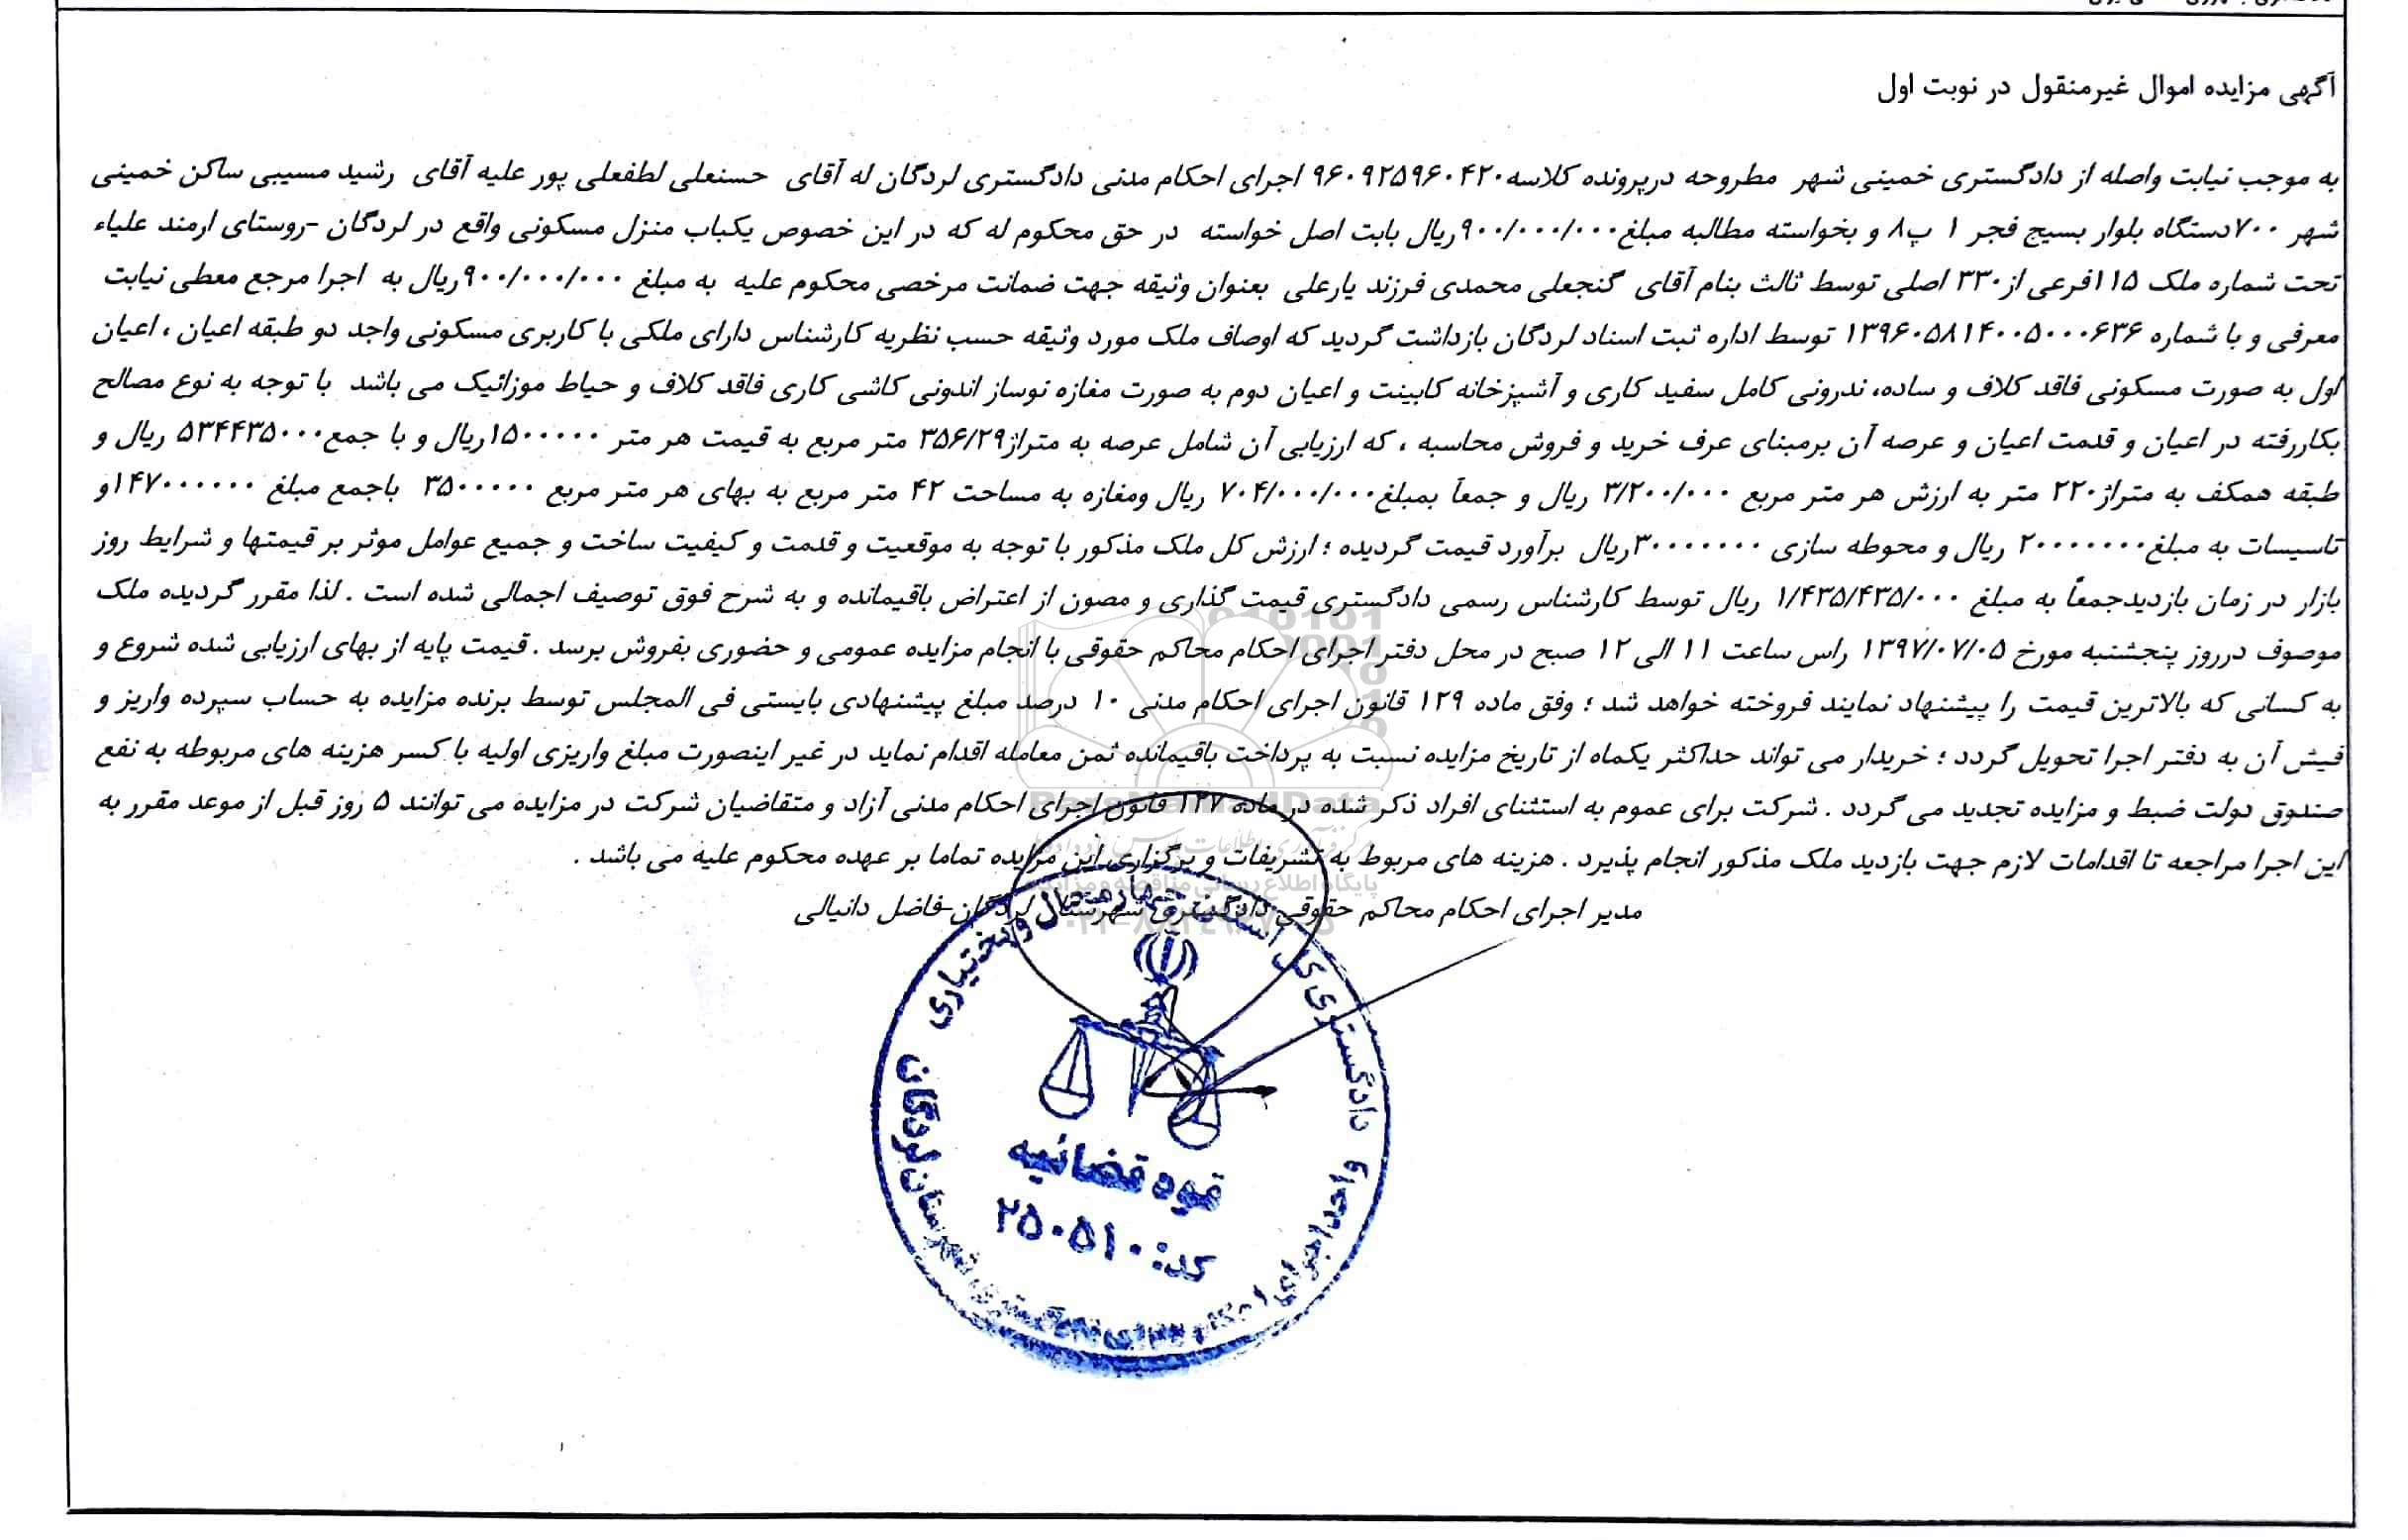 آگهی مزایده اموال غیرمنقول در نوبت اول
به موجب نیابت واصله از دادگستری خمینی شهر مطروحه درپرونده کلاسه۹۶۰۹۲۵۹۶۰۴۲۰ اجرای احکام مدنی دادگستری لردگان له آقای حسنعلی لطفعلی پور علیه آقای رشید مسیبی ساکن خمینی
شهر ۷۰۰دستگاه بلوار بسیج فجر ۱ پ۸ و بخواسته مطالبه مبلغ۹۰۰/۰۰۰/۰۰۰ریال بابت اصل خواسته در حق محکوم له که در این خصوص یکباب منزل مسکونی واقع در لردگان -روستای ارمند علیاء
تحت شماره ملک ۱۱۵فرعی از۳۳۰ اصلی توسط ثالث بنام آقای گنجعلی محمدی فرزند یارعلی بعنوان وثیقه جهت ضمانت مرخصی محکوم علیه به مبلغ ۹۰۰/۰۰۰/۰۰۰ریال به اجرا مرجع معطی نیابت
معرفی و با شماره ۱۳۹۶۰۵۸۱۴۰۰۵۰۰۰۶۳۶ توسط اداره ثبت اسناد لردگان بازداشت گردید که اوصاف ملک مورد وثیقه حسب نظریه کارشناس دارای ملکی با کاربری مسکونی واجد دو طبقه اعیان ، اعیان
اول به صورت مسکونی فاقد کلاف و ساده، ندرونی کامل سفید کاری و آشپزخانه کابینت و اعیان دوم به صورت مغازه نوساز اندونی کاشی کاری فاقد کلاف و حیاط موزائیک می باشد با توجه به نوع مصالح
بکاررفته در اعیان و قدمت اعیان و عرصه آن برمبنای عرف خرید و فروش محاسبه ، که ارزیابی آن شامل عرصه به متراژ۳۵۶/۲۹ متر مربع به قیمت هر متر ۱۵۰۰۰۰۰ریال و با جمع۵۳۴۴۳۵۰۰۰ ریال و
طبقه همکف به متراژ۲۲۰ متر به ارزش هر متر مربع ۳/۲۰۰/۰۰۰ ریال و جمعاً بمبلغ۷۰۴/۰۰۰/۰۰۰ ریال ومغازه به مساحت ۴۲ متر مربع به بهای هر متر مربع ۳۵۰۰۰۰۰ باجمع مبلغ ۱۴۷۰۰۰۰۰۰و
تاسیسات به مبلغ۲۰۰۰۰۰۰۰ ریال و محوطه سازی ۳۰۰۰۰۰۰۰ریال برآورد قیمت گردیده ؛ ارزش کل ملک مذکور با توجه به موقعیت و قدمت و کیفیت ساخت و جمیع عوامل موثر بر قیمتها و شرایط روز
بازار در زمان بازدیدجمعاً به مبلغ ۱/۴۳۵/۴۳۵/۰۰۰ ریال توسط کارشناس رسمی دادگستری قیمت گذاری و مصون از اعتراض باقیمانده و به شرح فوق توصیف اجمالی شده است . لذا مقرر گردیده ملک
موصوف درروز پنجشنبه مورخ ۱۳۹۷/۰۷/۰۵ راس ساعت ۱۱ الی ۱۲ صبح در محل دفتر اجرای احکام محاکم حقوقی با انجام مزایده عمومی و حضوری بفروش برسد . قیمت پایه از بهای ارزیابی شده شروع و
به کسانی که بالاترین قیمت را پیشنهاد نمایند فروخته خواهد شد ؛ وفق ماده ۱۲۹ قانون اجرای احکام مدنی ۱۰ درصد مبلغ پیشنهادی بایستی فی المجلس توسط برنده مزایده به حساب سپرده واریز و
فیش آن به دفتر اجرا تحویل گردد ؛ خریدار می تواند حداکثر یکماه از تاریخ مزایده نسبت به پرداخت باقیمانده ثمن معامله اقدام نماید در غیر اینصورت مبلغ واریزی اولیه با کسر هزینه های مربوطه به نفع
صندوق دولت ضبط و مزایده تجدید می گردد . شرکت برای عموم به استثنای افراد ذکر شده در ماده ۱۲۷ قانون اجرای احکام مدنی آزاد و متقاضیان شرکت در مزایده می توانند ۵ روز قبل از موعد مقرر به
این اجرا مراجعه تا اقدامات لازم جهت بازدید ملک مذکور انجام پذیرد . هزینه های مربوط به تشریفات و برگزاری این مزایده تماما بر عهده محکوم علیه می باشد .
پایگاه اطلاع رسانی مناقصه و مزایده
مدیر اجرای احکام محاکم حقوقی دادگستری شهرستان لردگان-فاضل دانیالی
دادگستری کل استان چهارمحال و بختیاری
قوه قضائیه
کد: ۲۵۰۵۱۰